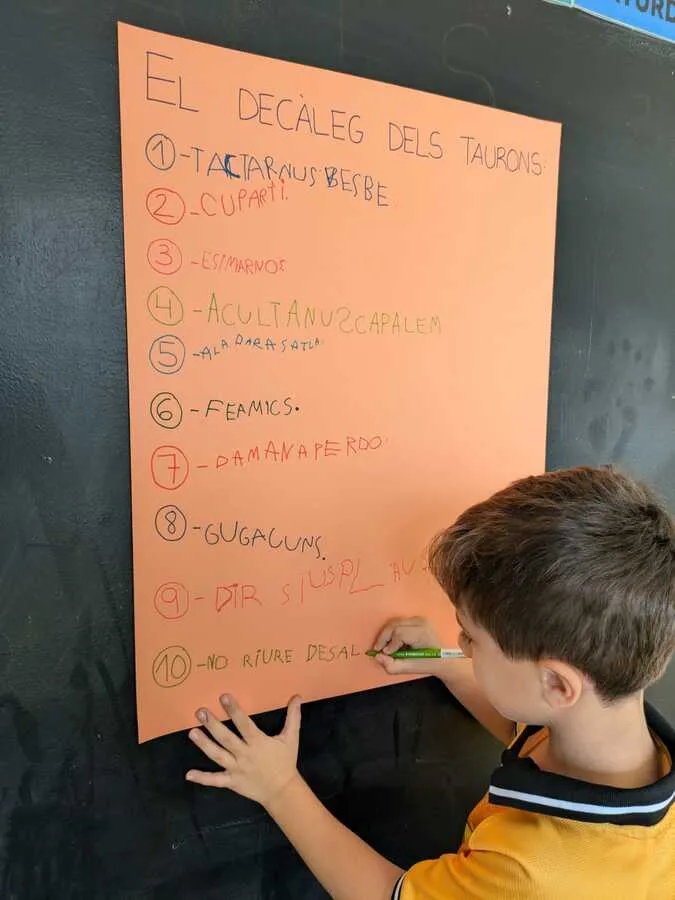 EL DECÀLEG DELS TAURONS.
1-TACTARNUS BESBE
2-CUPARTI.
3-ESIMARNOS
4-ACULTANUSCAPALEM
5-ALA PARASATLA.
6-FEAMICS.
7-DAMANAPERDO.
8-GUGACUNS.
9-DIR SIUSPL AU-
10-NO RIURE DESAL